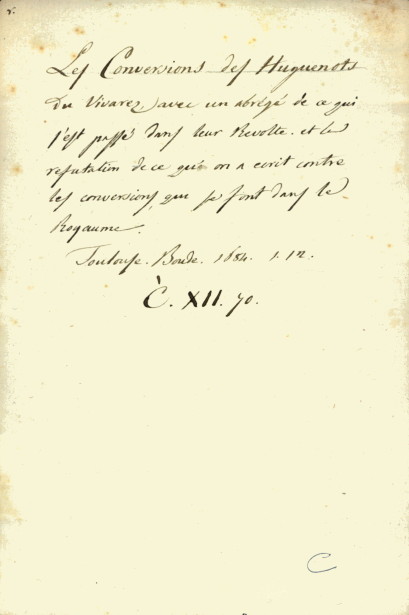 r.
Les Conversions des Huguenots
du Vivarez, avec un abrégé de ce qui
s'est passé dans leur Revolte. et la
refutation de ce qu'on a ecrit contre
les conversions, que se font dans le
Royaume.
Toulouse. Boude. 1684. 1. 12.
C. XII. 70.
C